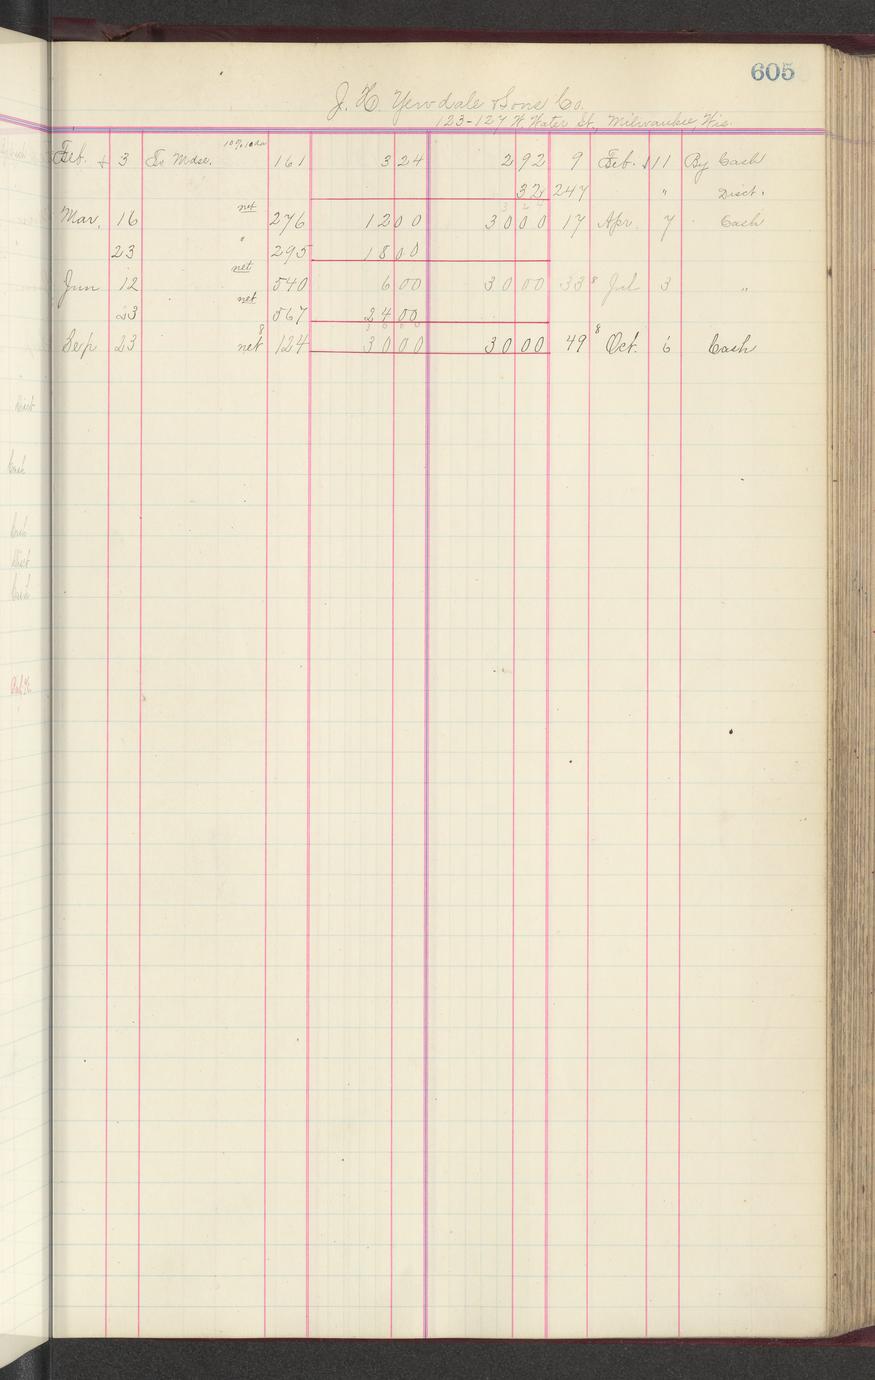 605
J. H. Yewdale & Sons Co.
123-127 W. Water St., Milwaukee, Wis.
Feb. 3 To Mdse. 10% 10 da 161 3 24 2 92 9 Feb. 11 By Cash
32 247 " Disct.
3 24
Mar. 16 net 276 12 00 30 00 17 Apr. 7 Cash
23 " 295 18 00
Jun 12 net 540 6 00 30 00 338 Jul 3 "
23 net 567 24 00
Sep. 23 net 8 124 30 00 30 00 49 8 Oct. 6 Cash
Disct
Cash
Cash
Disct
Cash